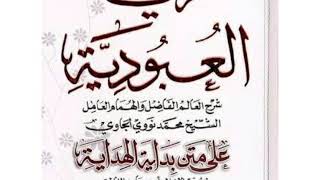 العُبُودِيَّة
شرح العالم الفاضل والهمام العامل
الشيخ محمد نووي الجاوي
على متن بداية الهداية